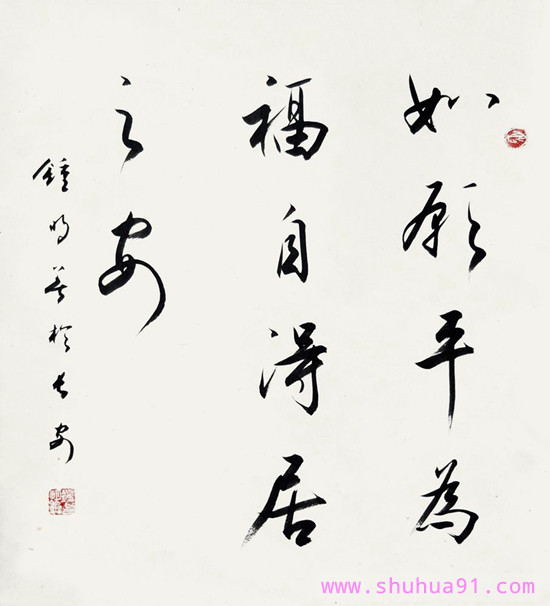 如願平為
福自得居
之安
鍾明善於長安
www.shuhua91.com